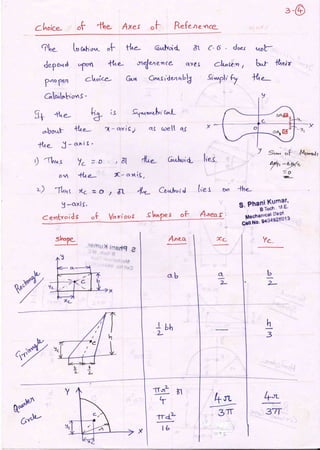 3-4
Choice of the Axes of Reference
The location of the Centroid or C.G. does not
depend upon the reference axes chosen, but their
proper choice can considerably simplify the
Calculations.
If the fig. is Symmetrical
about the x-axis, as well as
the y-axis.
1) Thus yc = 0, or the Centroid lies
on the x-axis.
2) Thus xc = 0, or the Centroid lies on the
y-axis.
y
x
x
O
c
y
Sum of Moments
= 0
S. Phani Kumar,
B.Tech. M.E.
Mechanical Dept
Cell No. 9434925013
Centroids of Various Shapes of Areas:
Shape Area xc Yc
Rectangle
y
a
b
c
yc
xc
x
ab a/2 b/2
Triangle
h
c
yc
b/2 b/2
1/2 bh — h/3
Quarter Circle
Y
c
r
X
πr²/4 or πd²/16 4r/3π 4r/3π